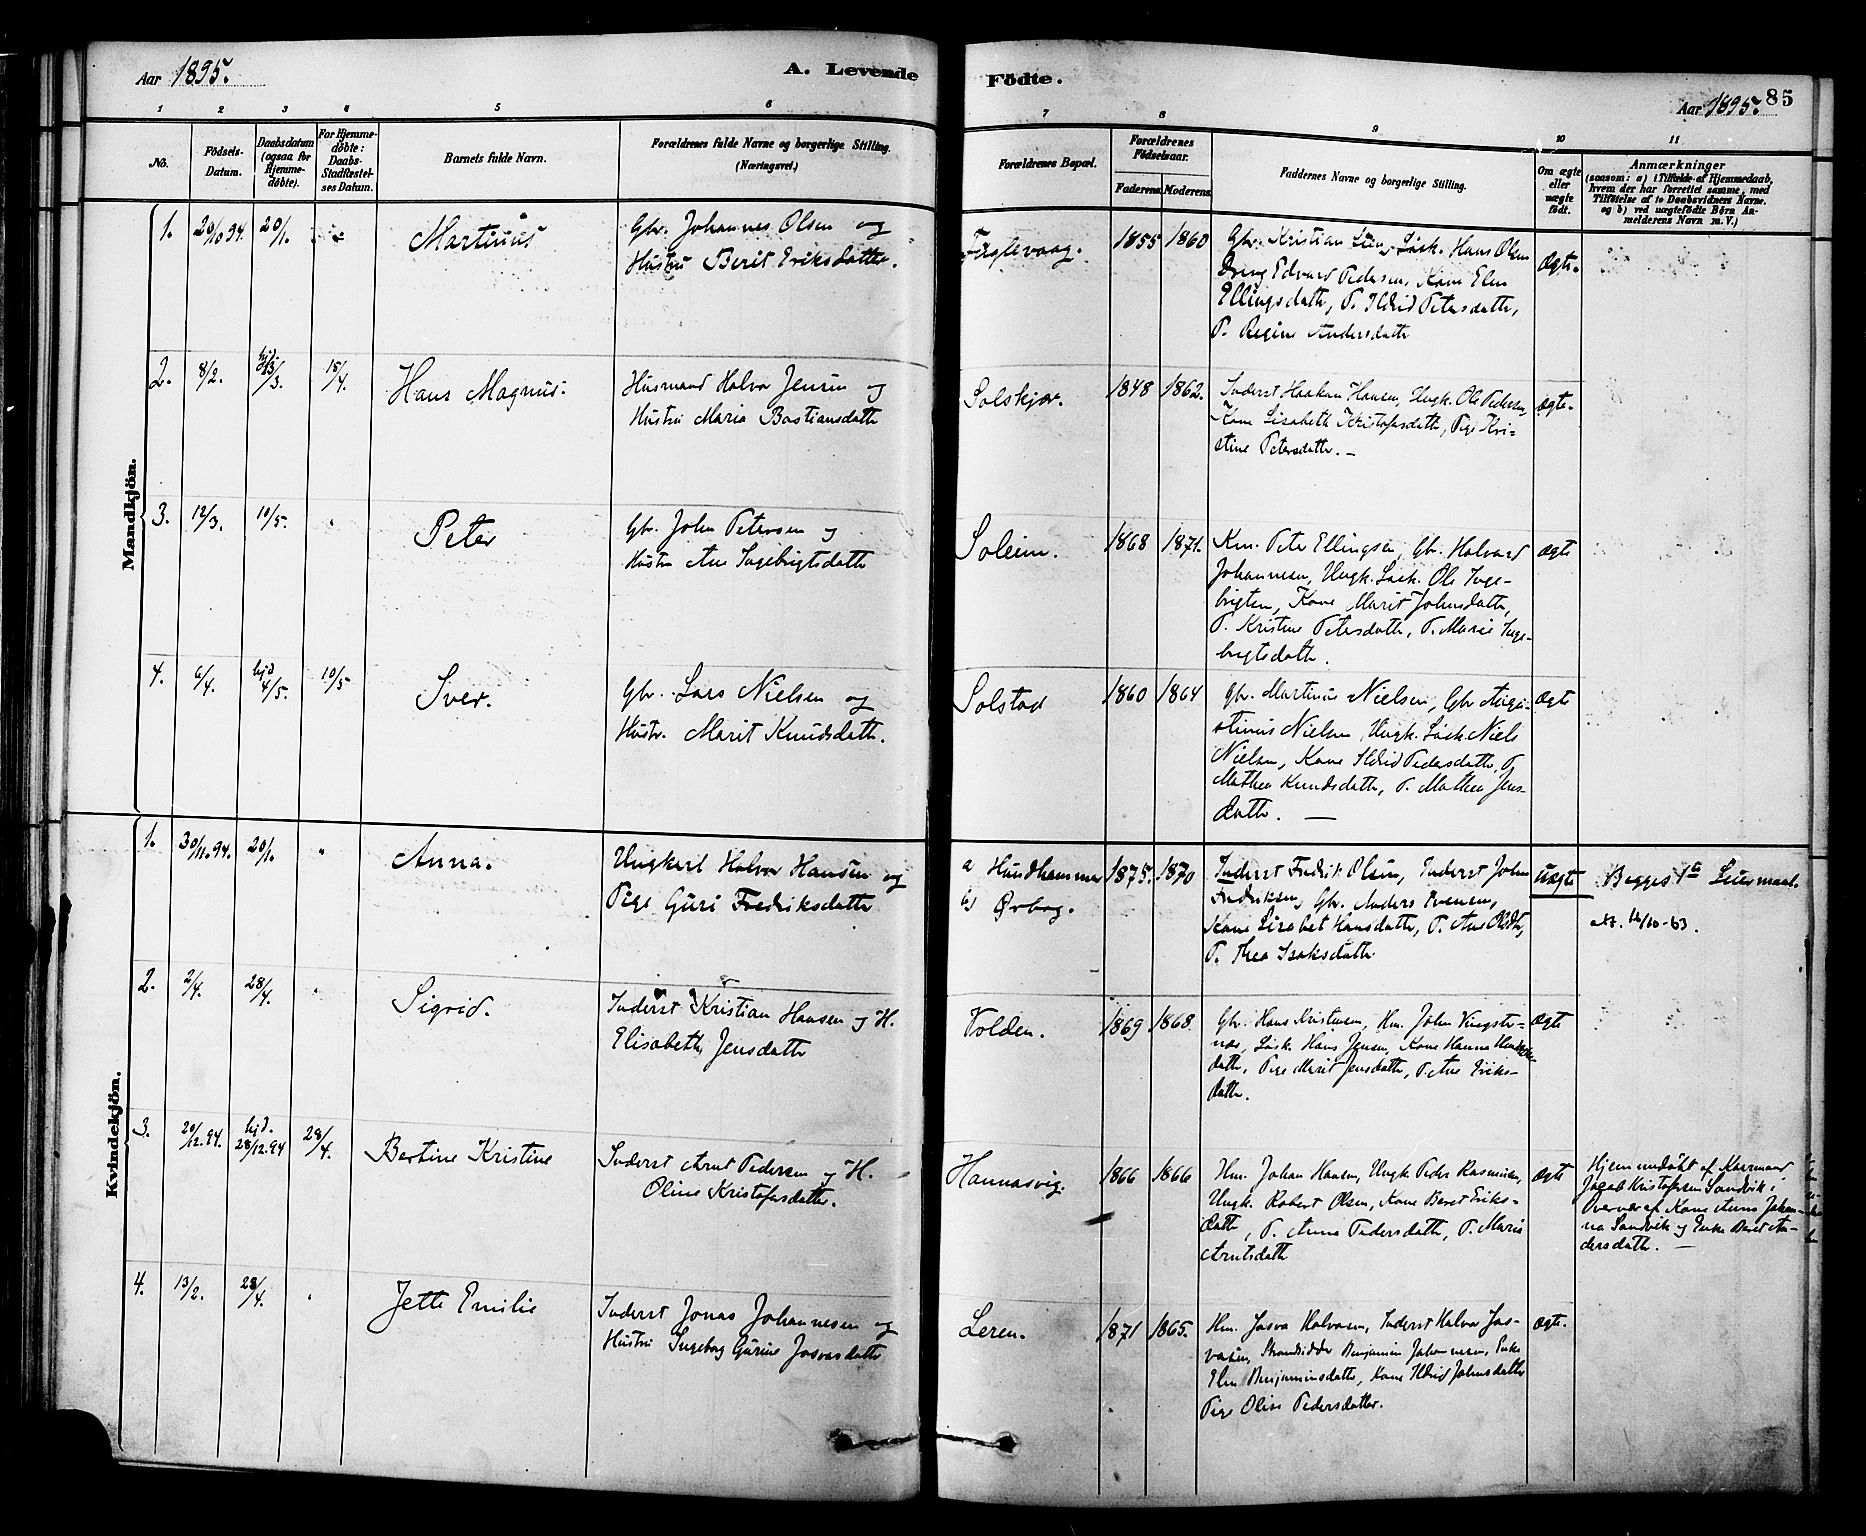 Aar 1895.
A. Levende
Födte.
Aar 1895.
85
1 2 3 4 5 6 7 8 9 10 11
No.
Födsels-Datum.
Daabsdatum (ogsaa for Hjemmedöbte).
For Hjemmedöbte: Daabs-Stadfæstelses Datum.
Barnets fulde Navn.
Forældrenes fulde Navne og borgerlige Stilling.
(Næringsvei.)
Forældrenes Bopæl.
Forældrenes Födselsaar.
Faderens. Moderens.
Faddernes Navne og borgerlige Stilling.
Om ægte eller uægte födt.
Anmærkninger
(saasom: a) i Tilfælde af Hjemmedaab,
hvem der har forrettet samme, med
Tilföielse af to Daabsvidners Navne.
og b) ved uægtefödte Börn An-
melderens Navn m. V.)
Mandkjön.
1. 20/10 94. 20/1. Martinus
Gbr. Johannes Olsen og
Hustru Berit Eriksdatter.
Fuglevaag. 1855 1860
Gbr. Kristian Lien, Løsk. Hans Olsen
Dreng Edvard Pedersen, Kone Elen
Ellingsdatter, P. Ildrid Petersdatter,
P. Regine Andersdatter
Ægte.
2. 8/2. hjd. 23/3. 15/4. Hans Magnus.
Husmand Halvor Jensen og
Hustru Maria Bastiansdatter
Solskjær. 1848 1862.
Inderst Haakon Hansen, Ungk. Ole Pedersen,
Kone Lisabeth Kristofersdatter, Pige Kri-
stine Petersdatter. —
ægte.
3. 12/3. 10/5. Peter
Gbr. John Petersen og
Hustru Ane Ingebrigtsdatter
Soleim. 1868 1871.
Km. Peter Ellingsen, Gbr. Halvard
Johannesen, Ungk. Løsk. Ole Inge-
brigtsen, Kone Marit Johnsdatter,
P. Kristine Petersdatter, P. Marie Inge-
brigtsdatter.
ægte
4. 6/4. hjd 4/5. 10/5 Iver.
Gbr. Lars Nielsen og
Hustr. Marit Knudsdatter.
Solstad 1860 1864
Gbr. Martinus Nielsen, Gbr Augu-
stinus Nielsen Ungk. Løsk. Niels
Nielsen, Kone Ildrid Pedersdatter, P.
Mathea Knudsdatter, P. Mathea Jens-
datter. —
Ægte
Kvindekjön.
1. 30/11.94. 20/1. Anna.
Ungkarl Halvor Hansen og
Pige Guri Fredriksdatter
a Hundhammer
b) Ørbog.
1875. 1870
Inderst Fredrik Olsen, Inderst John
Fredriksen, Gbr. Anders Evensen,
Kone Lisabet Hansdatter, P. Ane Olsdtr,
P. Thea Isaksdatter
uægte
Begges 1ste Leiermaal.
Att. 14/10-63.
2. 2/4. 28/4. Sigrid.
Inderst Kristian Hansen og H.
Elisabeth Jensdatter
Volden. 1869 1868.
Gbr. Hans Kristensen, Hm. John Vingster-
næs, Løsk. Hans Jensen, Kone Hanna Henriks-
datter, Pige Marit Jensdatter, P. Ane Eriks-
datter.
ægte
3. 20/12.94. hjd. 28/12.94 28/4. Bertine Kristine
Inderst Arnt Pedersen og H.
Oline Kristofersdatter.
Hannasvig. 1866 1866
Hm. Johan Hansen, Ungk Peder Rasmusen,
Ungk. Robert Olsen, Kone Beret Eriks-
datter, P. Anna Pedersdatter, P. Marie
Arntsdatter
Ægte
Hjemmedøbt af Kaarmand
Jakob Kristofersen Sandvik i
Overvær af Kone Anne Johan-
na Sandvik og Enke Beret An-
dersdatter. —
4. 13/2. 28/4. Jette Emilie
Inderst Jonas Johannesen og
Hustru Ingeborg Gurine Josvasdatter
Leren. 1871 1865.
Hm. Josva Halvorsen, Inderst Halvor Jos-
vasen, Strandsidder Benjamin Johannesen, Enke
Elen Benjaminsdatter, Kone Ildrid Johnsdatter
Pige Olise Pedersdatter.
ægte.